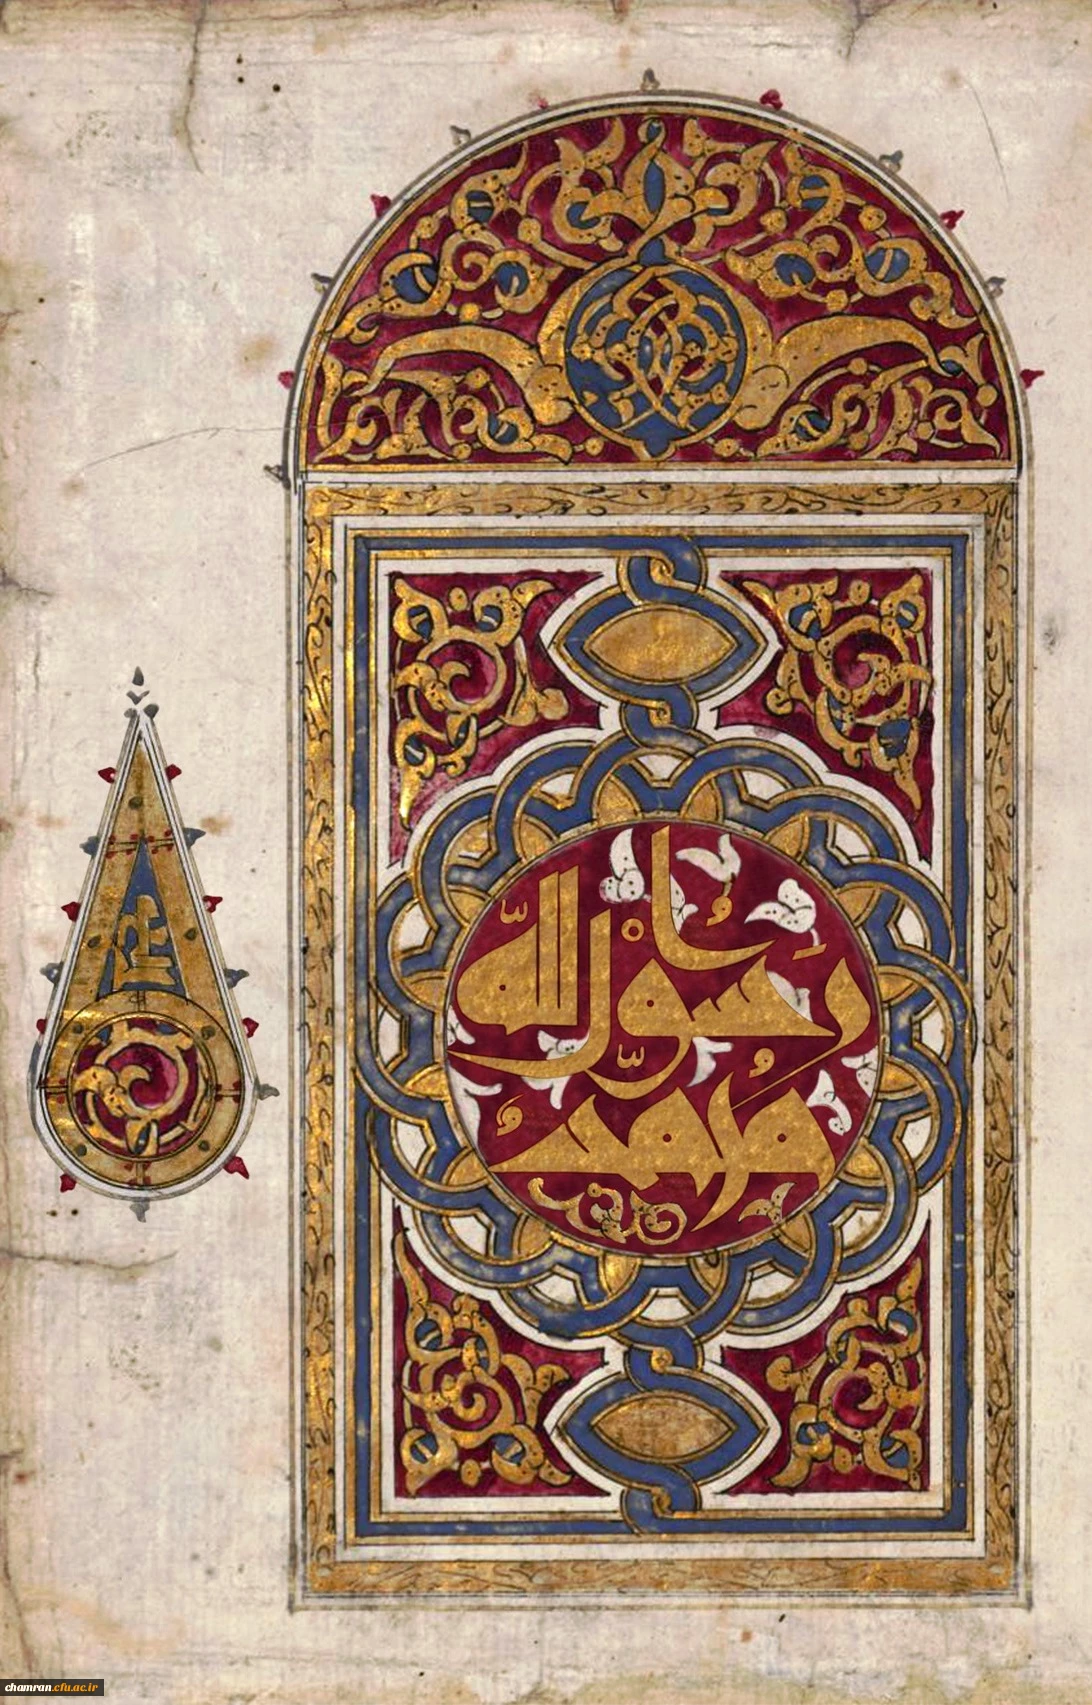 محمد
رسول الله
chamran.cfu.ac.ir